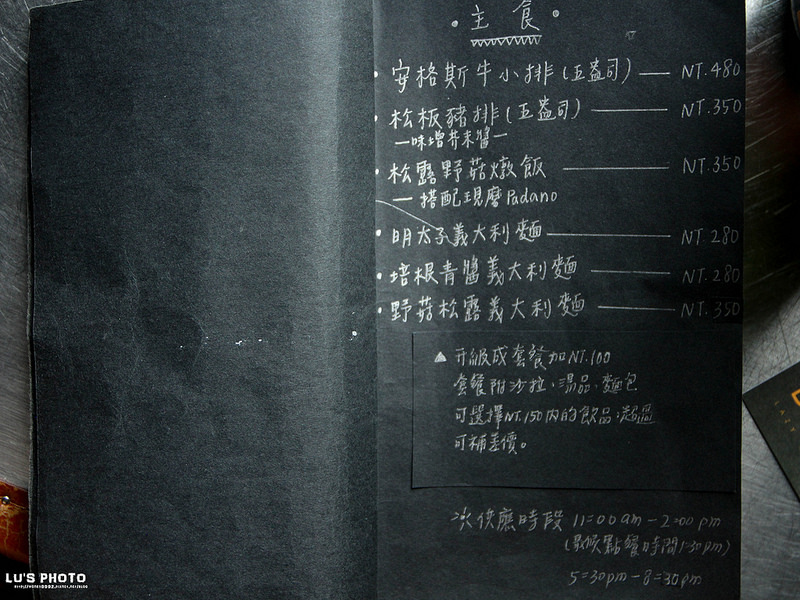 •主食•
•安格斯牛小排(五盎司)— NT.480
•松板豬排(五盎司)— NT.350
—味增芥末醬—
•松露野菇燉飯 — NT.350
— 搭配現磨Padano
•明太子義大利麵 — NT.280
•培根青醬義大利麵 — NT.280
•野菇松露義大利麵 — NT.350
▲升級成套餐加NT.100
套餐附沙拉、湯品、麵包
可選擇NT.150內的飲品,超過
可補差價。
供應時段 11:00am-2:00pm
(最後點餐時間1:30pm)
5:30pm-8:30pm
LAZY
LU'S PHOTO